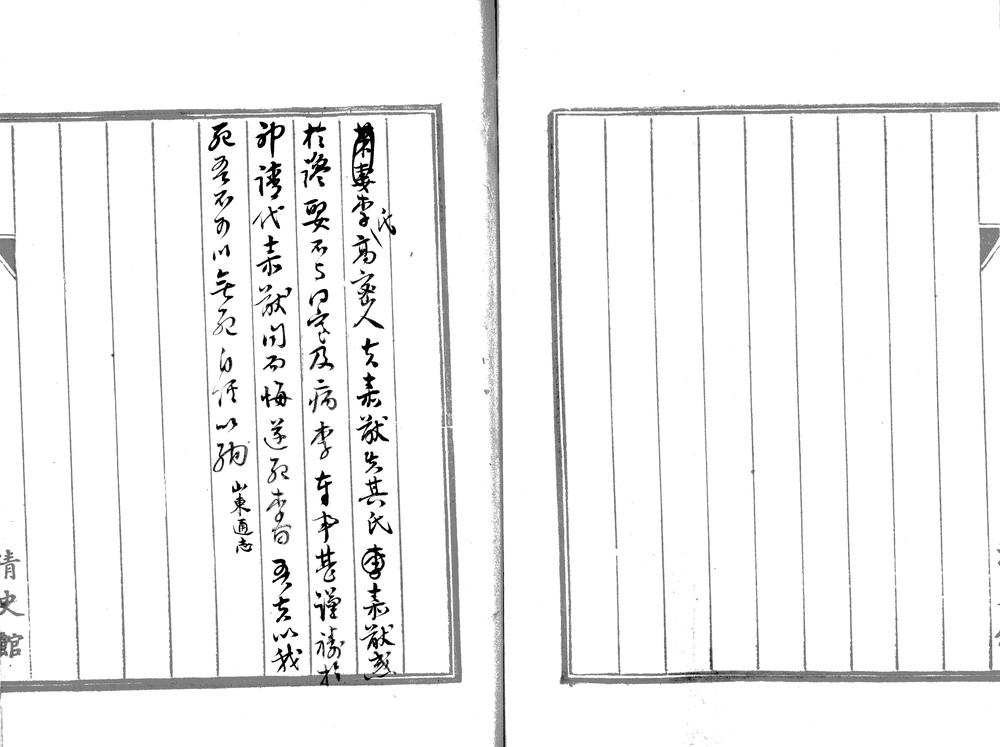 李氏高密人夫嘉猷失其氏嘉猷惑
於讒娶不与同室及病李奉事甚謹禱於
神請代嘉猷聞而悔遂死李曰吾夫以我
死吾不可以無死自經以殉
山東通志
清史館